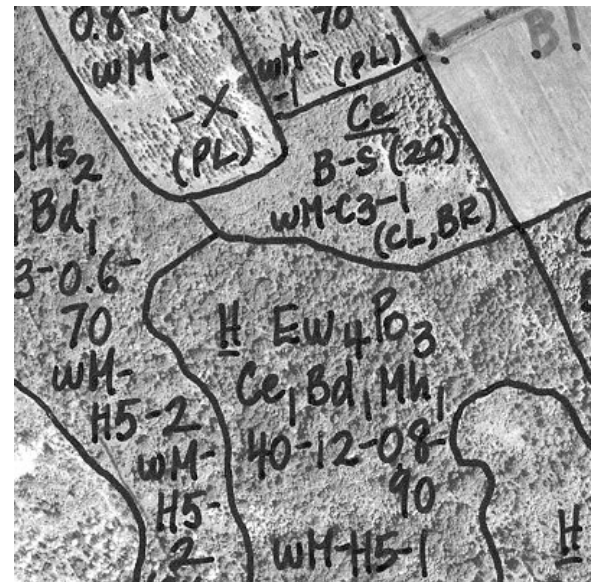 0.8-70
WM-
-X
(PL)
70
WM-
-1
(PL)
B1
Ce
B-S (20)
WM-C3-1
(CL, BR)
-Ms2
Bd1
3-0.6-
70
WM-
H5-2
WM-
H5-
2
H Ew4Po3
Ce1Bd1Mh1
40-12-0.8-
90
WM-H5-1
H